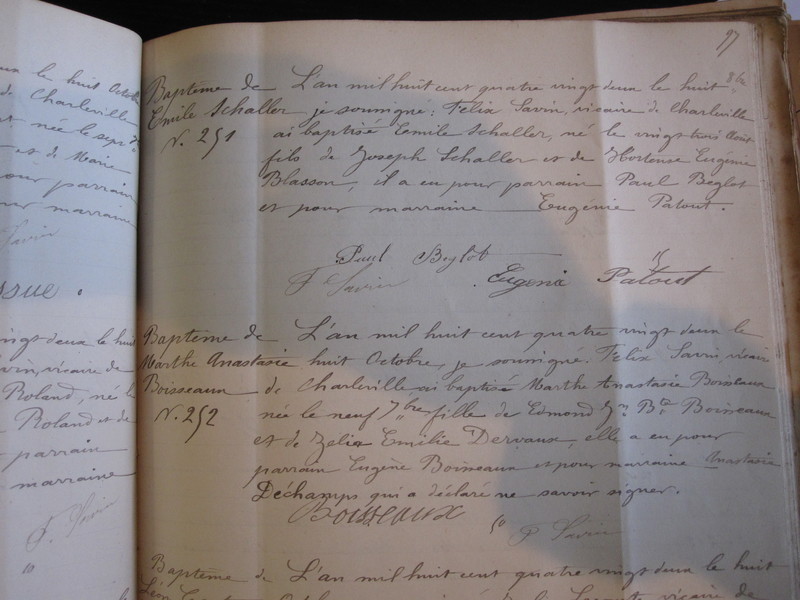 ux le huit Octobre
de Charleville
né le sept 7
et de Marie
our parrain
our marraine
Savin
ssue
ingt deux le huit
vin, vicaire de
Roland, né le
Roland et de
parrain
marraine
F. Savin
97
Baptême de L'an mil huit cent quatre vingt deux le huit 8bre
Emile Schaller je soussigné: Felix Savin, vicaire de Charleville
N. 251 ai baptisé Emile Schaller, né le vingt trois Août
fils de Joseph Schaller et de Hortense Eugénie
Blasson, il a eu pour parrain Paul Beglot
et pour marraine Eugénie Patout.
Paul Beglot
F Savin Eugenie Patout
Baptême de L'an mil huit cent quatre vingt deux le
Marthe Anastasie huit Octobre, je soussigné. Felix Savin, vicaire
Boisseaux de Charleville ai baptisé Marthe Anastasie Boisseaux
N. 252 née le neuf 7bre fille de Edmond Jn Bte Boisseaux
et de Zelia Emilie Dervaux, elle a eu pour
parrain Eugène Boisseaux et pour marraine Anastasie
Déchamps qui a déclaré ne savoir signer.
BOISSEAUX F Savin
Baptême de L'an mil huit cent quatre vingt deux le huit
Léon vicaire de